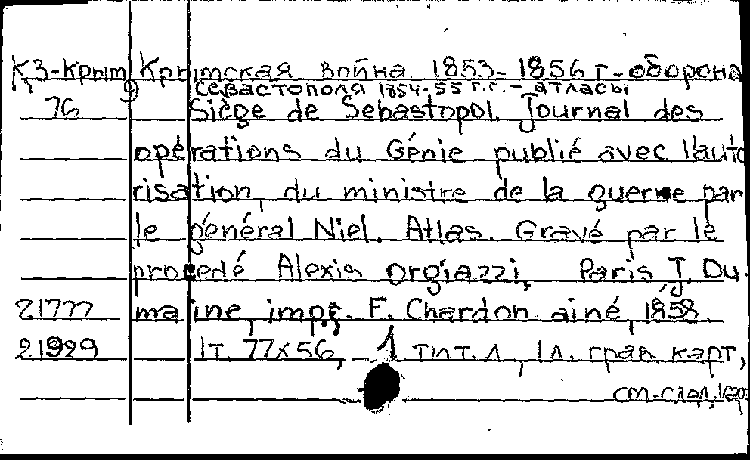 КЗ-Крым Крымская война 1853-1856 г-оборона
Севастополя 1854-55 г.г. - атласы
9
76 Siège de Sebastopol. Journal des
opérations du Génie publié avec l'auto
risation, du ministre de la guerre par
le général Niel. Atlas. Gravé par le
procedé Alexis Orgiazzi, Paris, J. Du-
21777 maine, impr. F. Chardon ainé, 1858.
21929 1т. 77x56, - 1 тит. л, 1л. грав карт,
см-след.